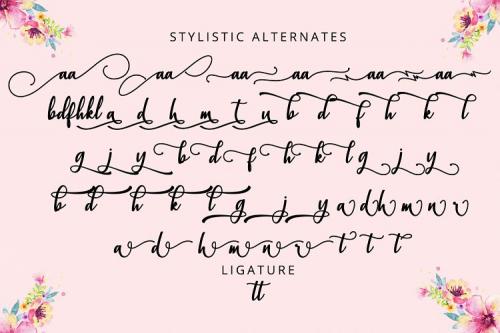 STYLISTIC ALTERNATES
aa aa aa aa aa aa
bdfhkl a d h m t u b d f h k l
g j y b d f h k l g j y
b d h k l g j y a d h m n u
a d h m n u t t t
LIGATURE
tt